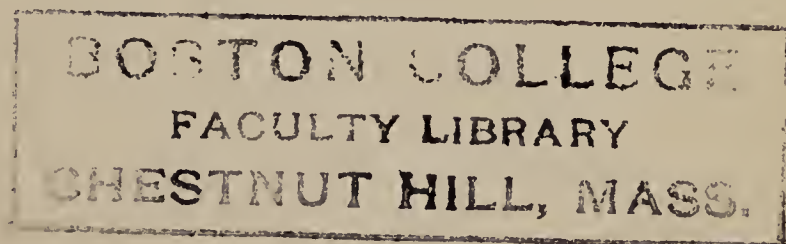 BOSTON COLLEGE
FACULTY LIBRARY
CHESTNUT HILL, MASS.